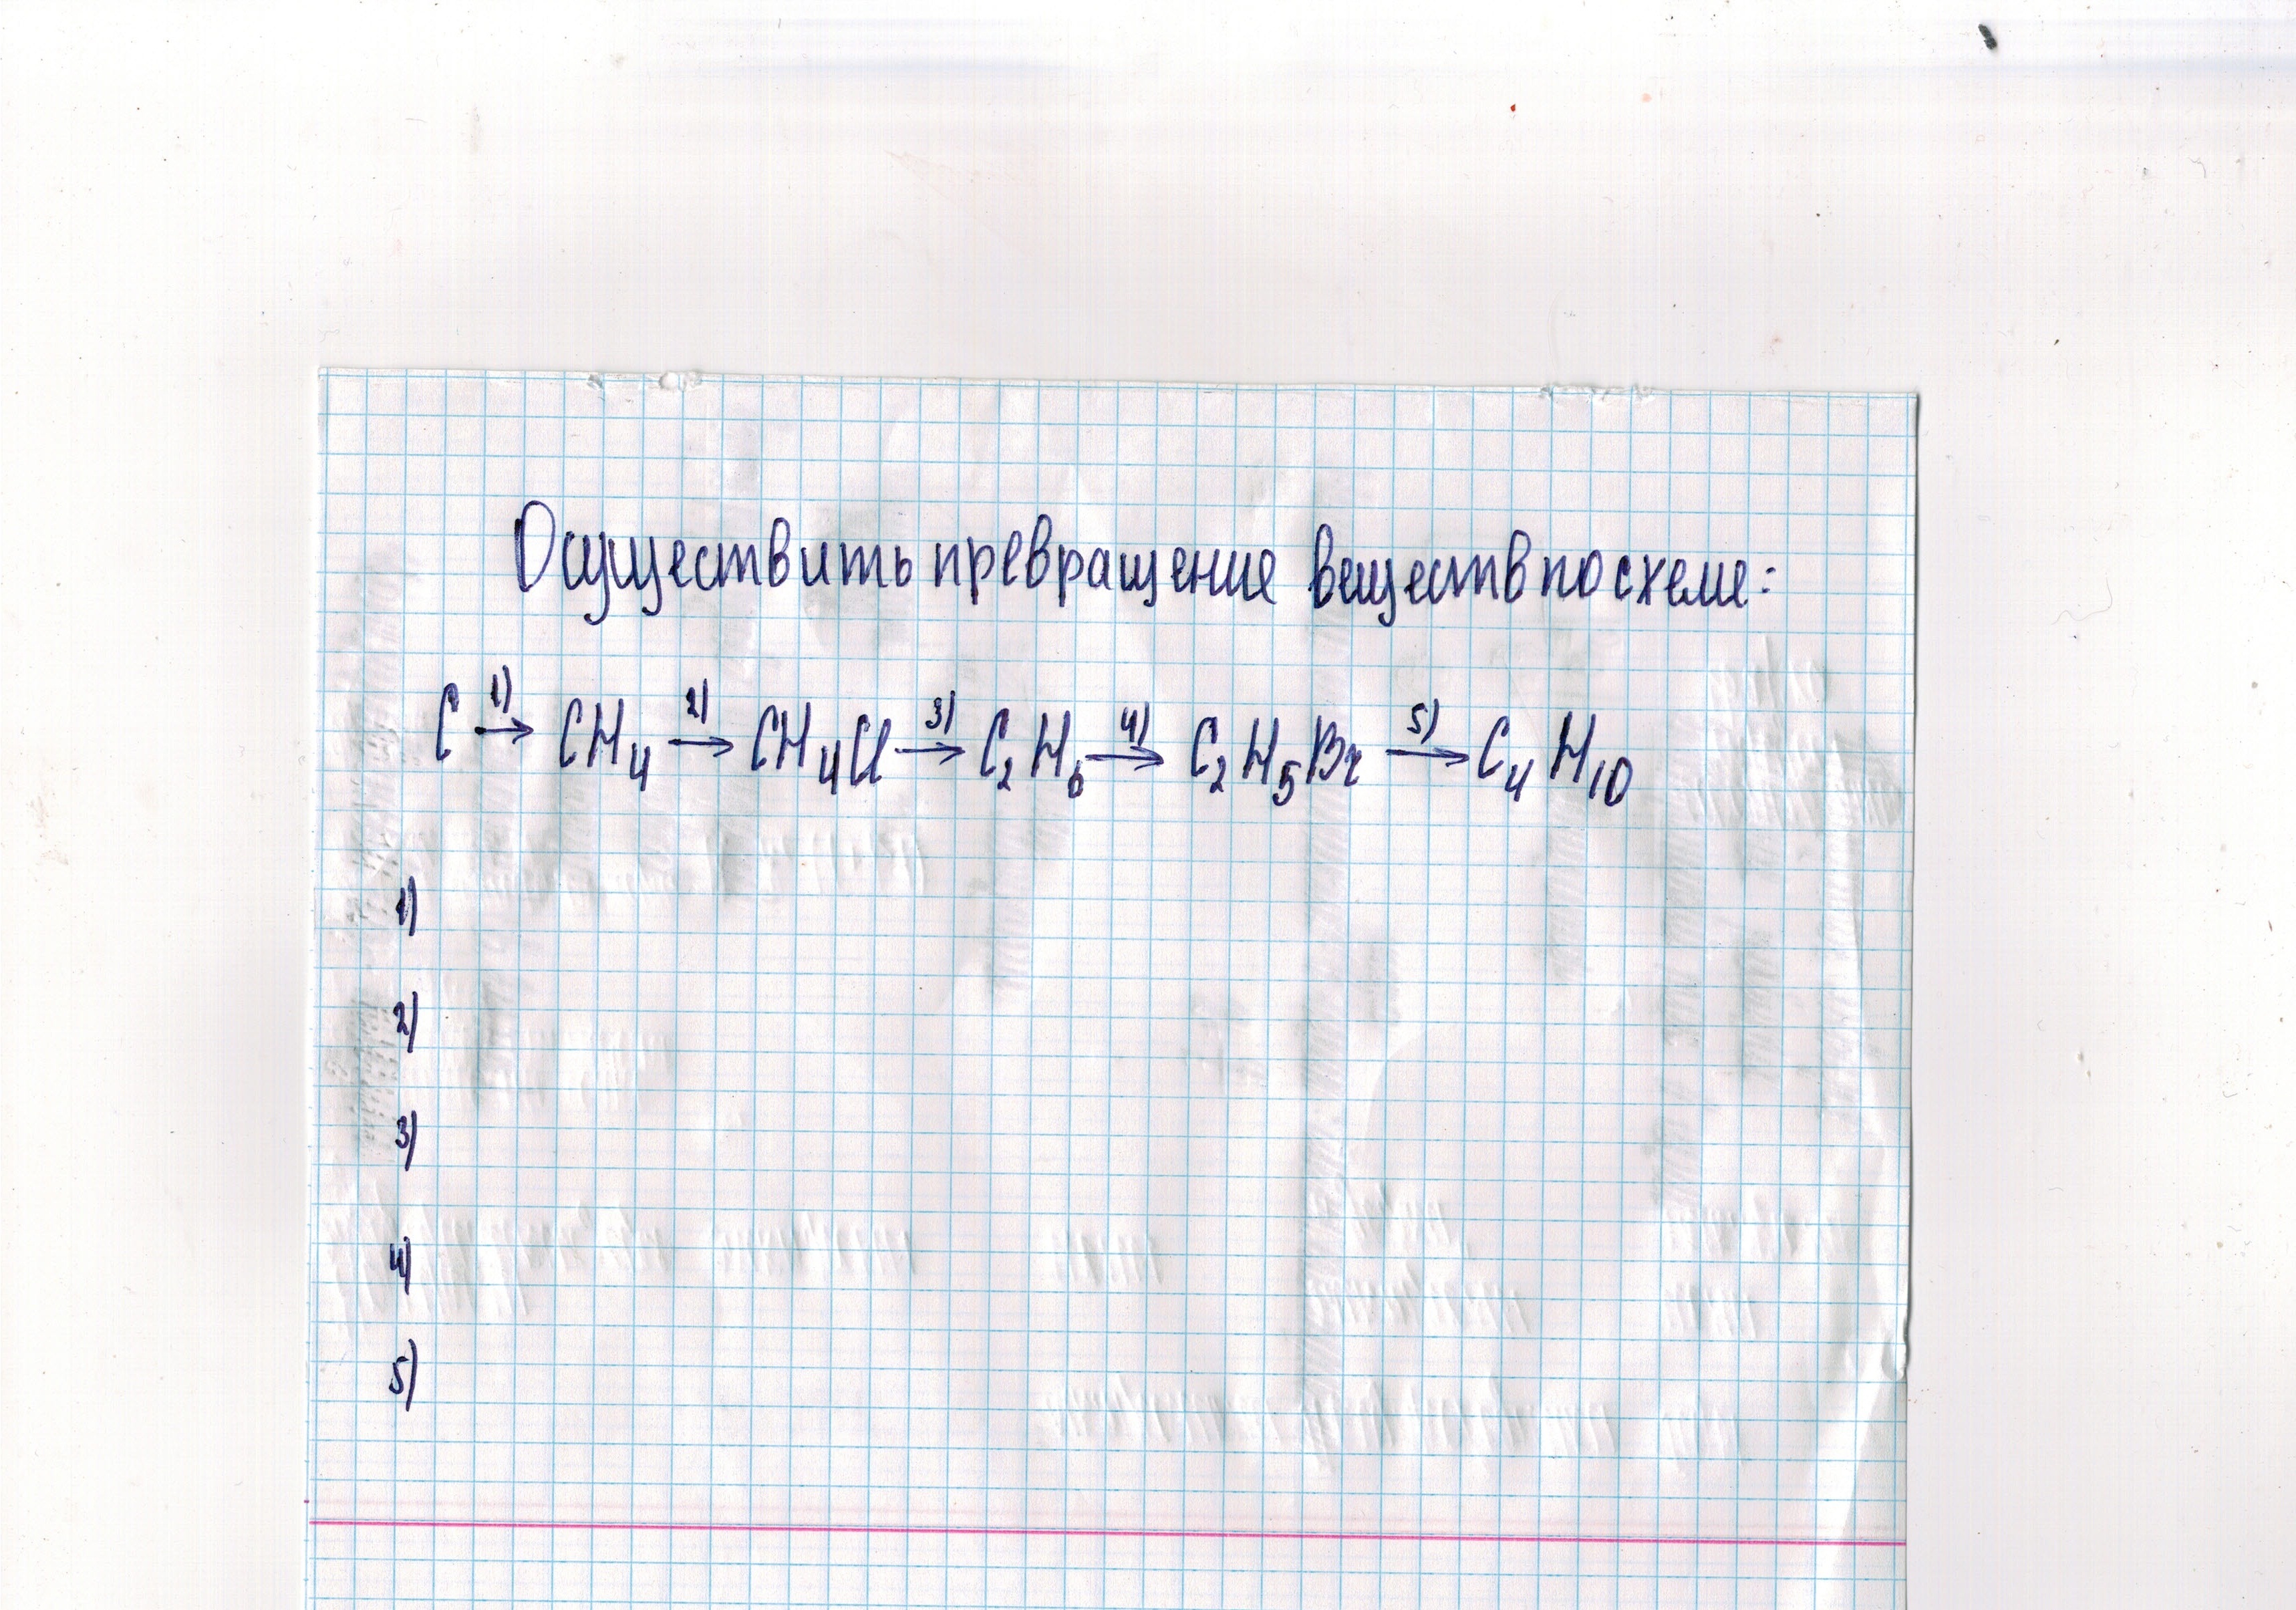 Осуществить превращение веществ по схеме:
C 1)→ CH₄ 2)→ CH₄Cl 3)→ C₂H₆ 4)→ C₂H₅Br 5)→ C₄H₁₀
1)
2)
3)
4)
5)